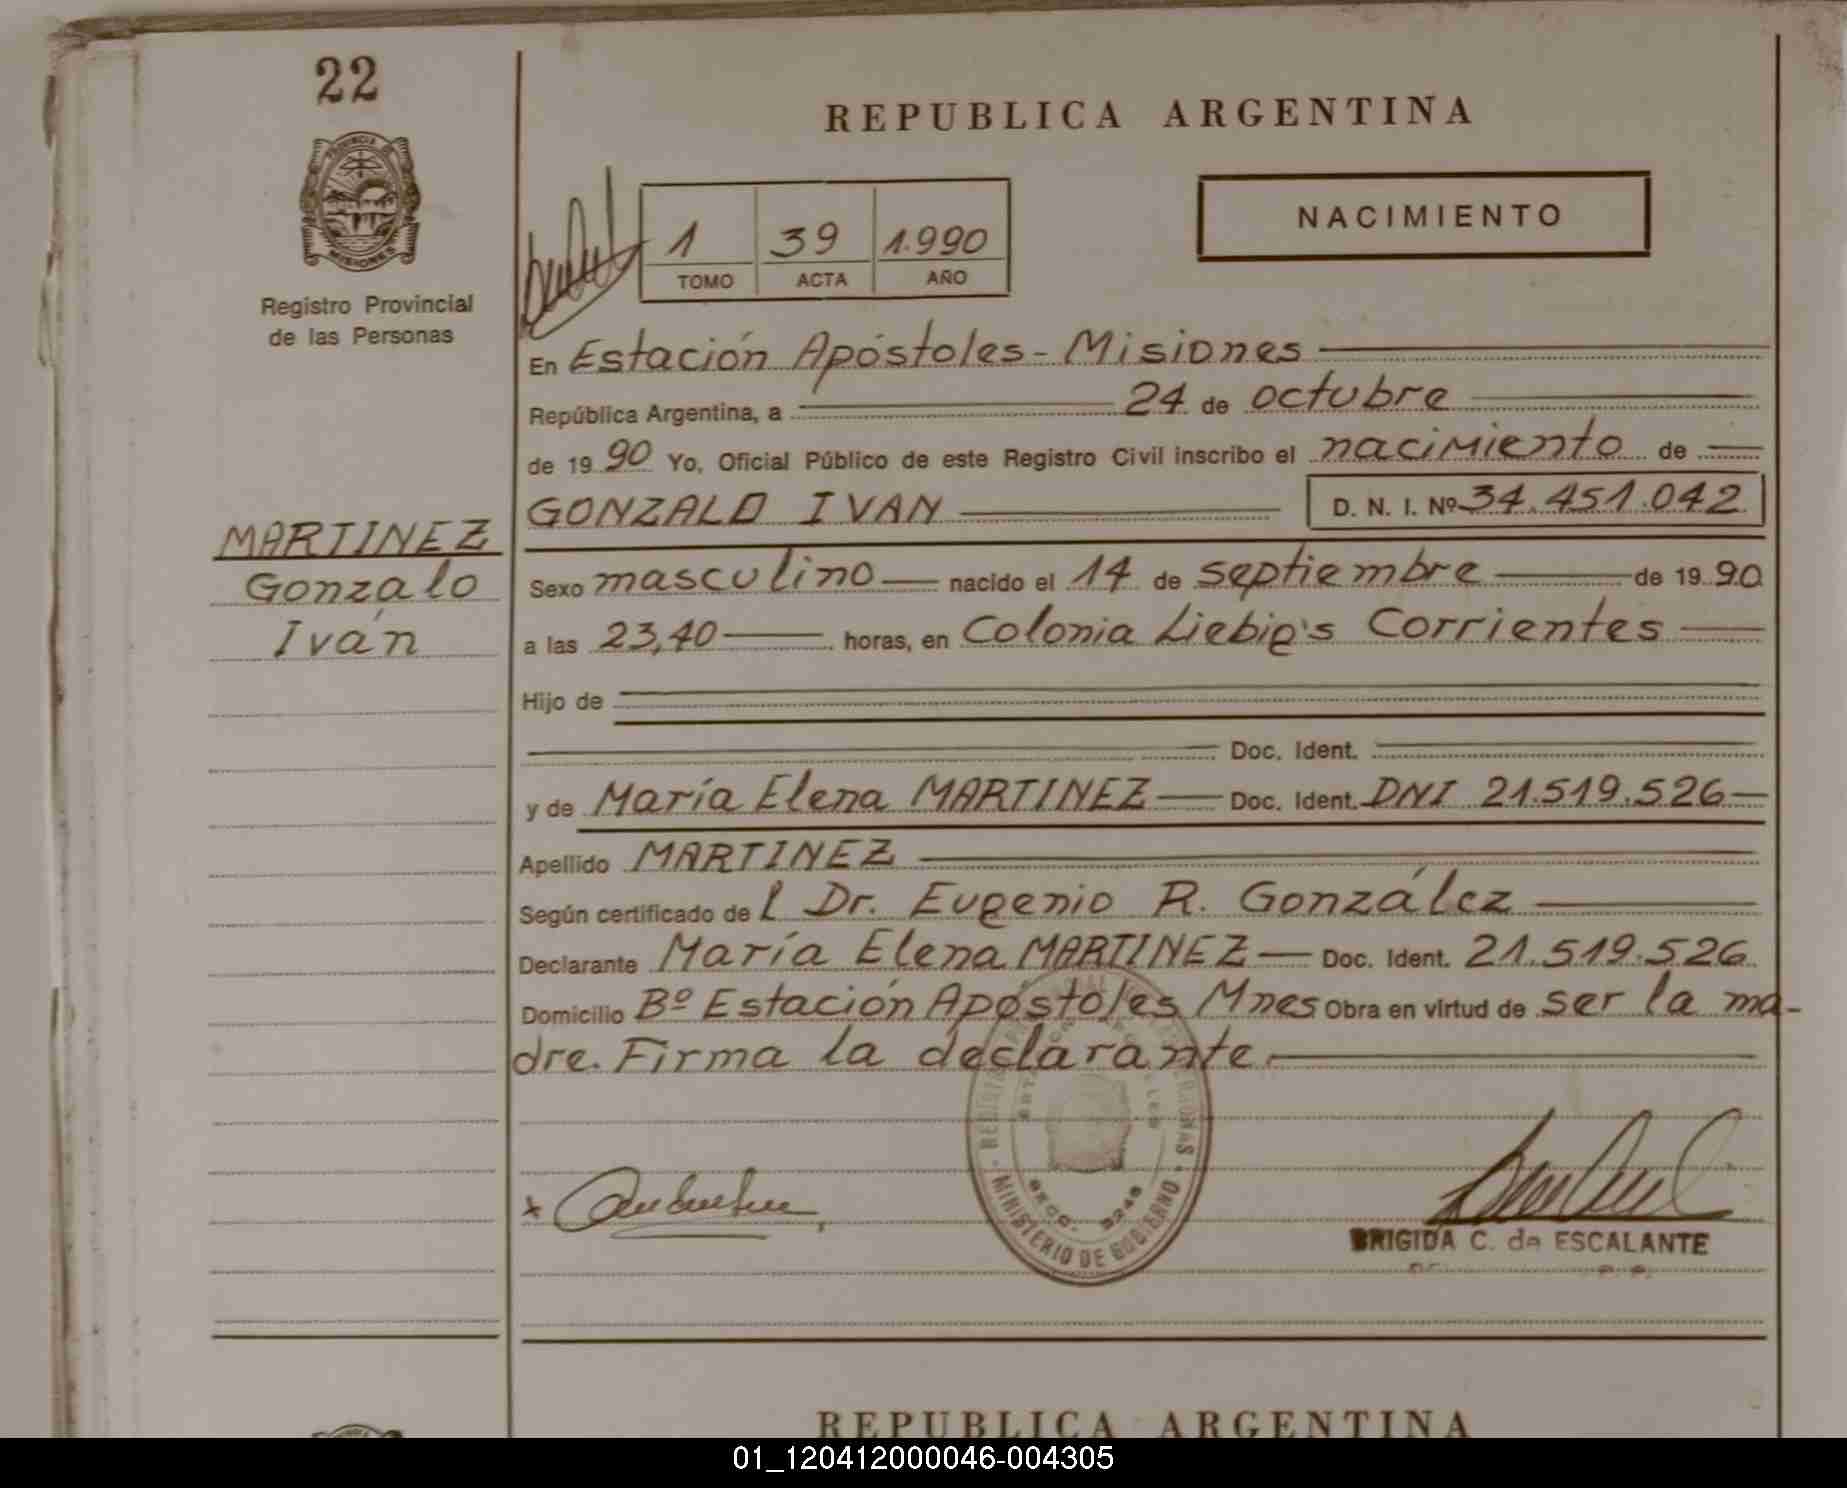 22
REPUBLICA ARGENTINA
PROVINCIA DE
MISIONES
Registro Provincial
de las Personas
1 39 1.990
TOMO ACTA AÑO
NACIMIENTO
En Estación Apóstoles - Misiones
República Argentina, a 24 de octubre
de 19 90 Yo, Oficial Público de este Registro Civil inscribo el nacimiento de
GONZALO IVAN D. N. I. Nº 34.451.042
MARTINEZ
Gonzalo
Iván
Sexo masculino nacido el 14 de septiembre de 19 90
a las 23,40 horas, en Colonia Liebig's Corrientes
Hijo de
Doc. Ident.
y de María Elena MARTINEZ Doc. Ident. DNI 21.519.526
Apellido MARTINEZ
Según certificado de l Dr. Eugenio R. González
Declarante María Elena MARTINEZ Doc. Ident. 21.519.526
Domicilio Bº Estación Apóstoles Mnes Obra en virtud de ser la ma-
dre. Firma la declarante.
MINISTERIO DE GOBIERNO
BRIGIDA C. de ESCALANTE
REPUBLICA ARGENTINA
01_120412000046-004305